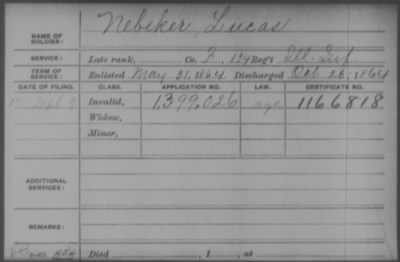 NAME OF SOLDIER: Nebeker, Lucas
SERVICE: Late rank, Co. 134 Reg't Ill. Inf.
TERM OF SERVICE: Enlisted May 31, 1864 Discharged Oct 25, 1864
DATE OF FILING. CLASS. APPLICATION NO. LAW. CERTIFICATE NO.
Invalid, 1,399,026 age 1166818
Widow,
Minor,
ADDITIONAL SERVICES:
REMARKS:
Died , 1 , at